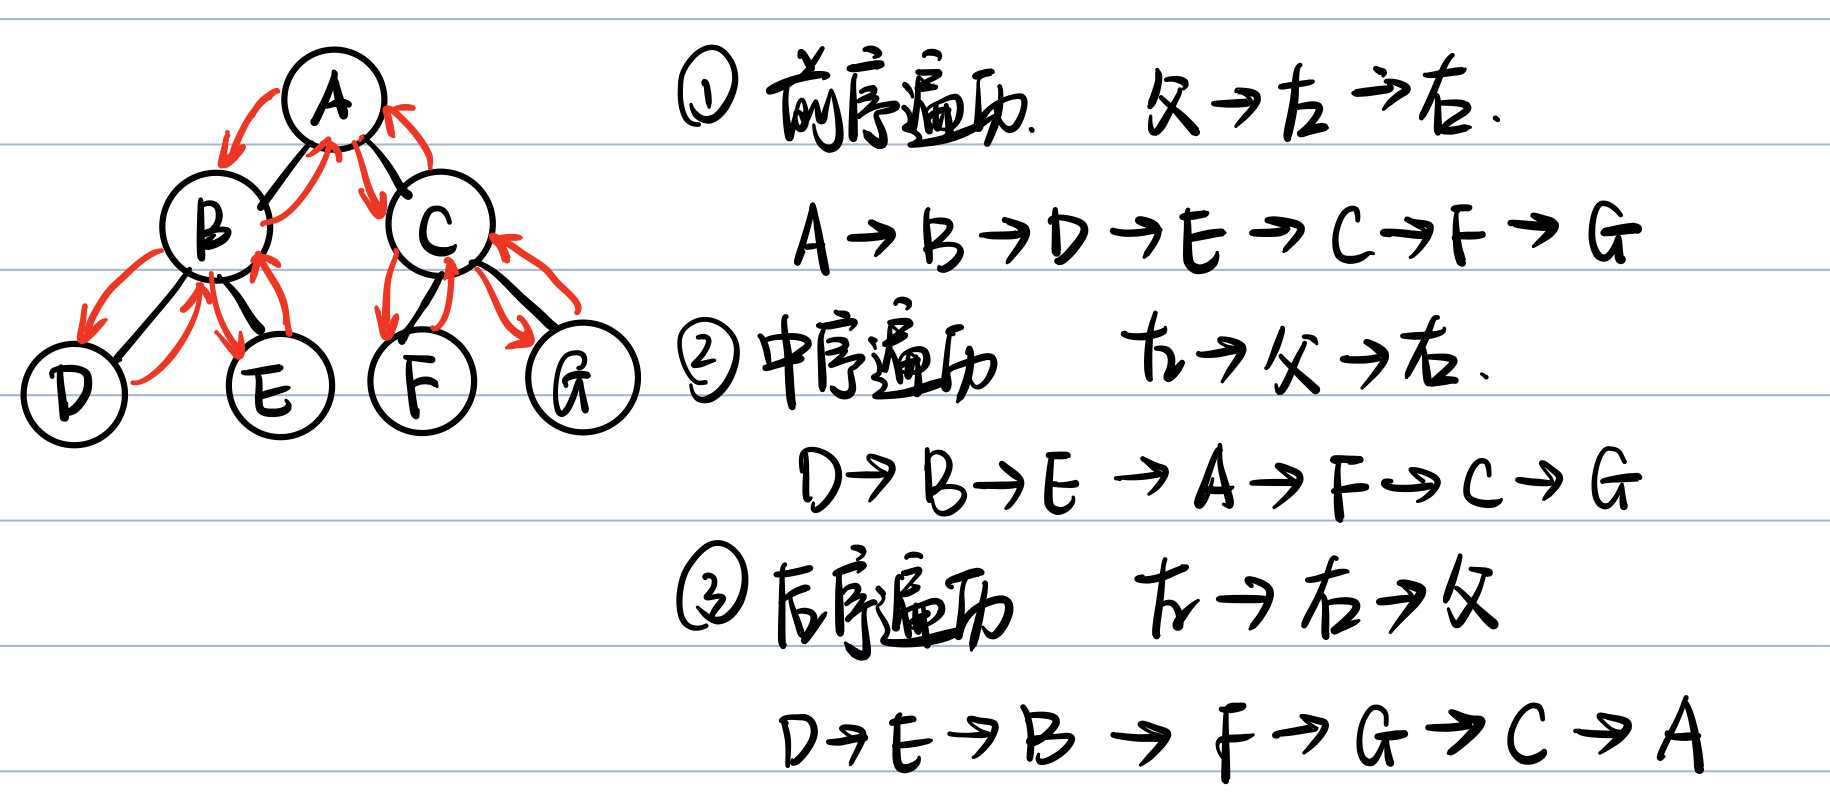 A
B
C
D
E
F
G
① 前序遍历. 父→左→右.
A→B→D→E→C→F→G
② 中序遍历 左→父→右.
D→B→E→A→F→C→G
③ 后序遍历 左→右→父
D→E→B→F→G→C→A